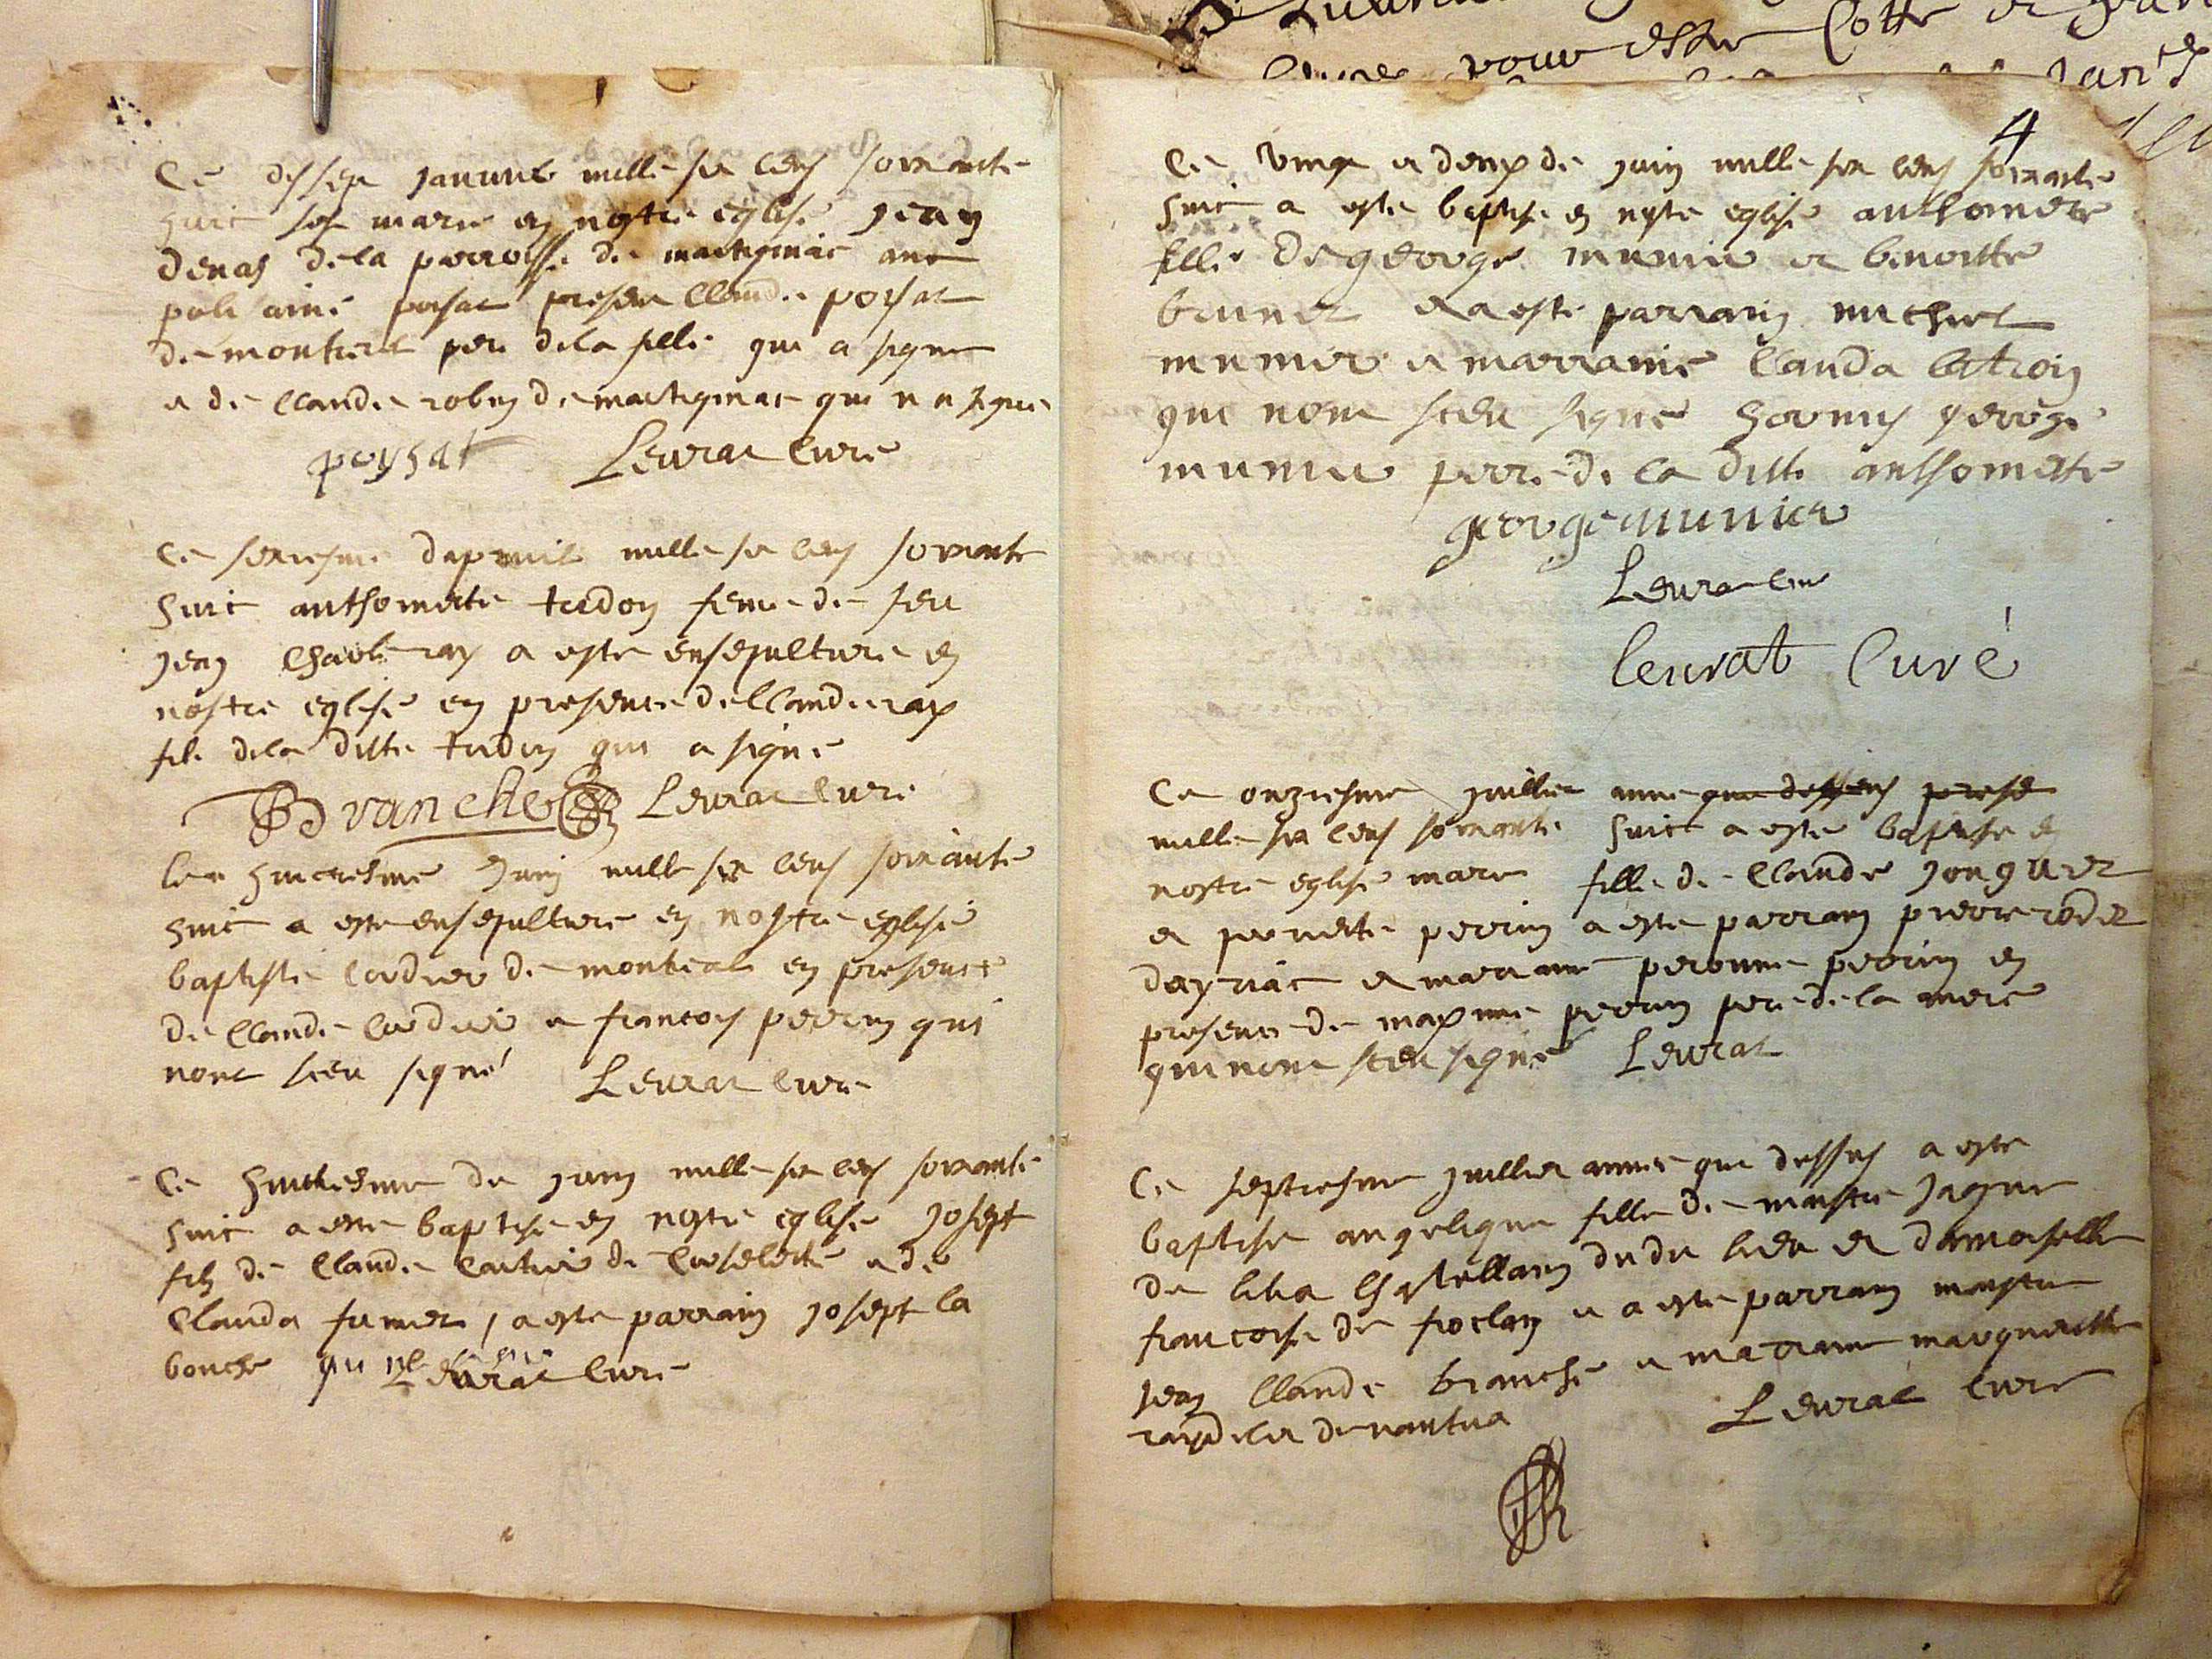 Ce disset januier mille six cens soixante
huit sest marie en nostre eglise jean
denas de la parroisse de martignac auec
poli aine poisat present Claude poisat
de montreal pere de la fille qui a signe
et de Claude robin de martignac qui na signe
poysat Leurat Cure
Ce sexiesme dapvril mille six cens soixante
huit anthoinette tudon feme de feu
jean Charle ray a este ensepulture en
nostre eglise en presence de Claude ray
fils de la ditte tudon qui a signe
Branche Leurat Cure
Ce huictiesme Juin mille six cens soixante
huit a este ensepulture en nostre eglise
baptiste Cordier de montreal en presence
de Claude Cordier et francois perrin qui
nont sceu signé Leurat Cure
Ce huictiesme de juin mille six cens soixante
huit a este baptise en nostre eglise josept
filz de Claude Cartier de et de
Clauda fumet, a este parrain josept la
bouche Leurat Cure
4
Ce vingt et deux de juin mille six cens soixante
huit a este baptise en nostre eglise anthoinette
fille de george munier et benoitte
brunet et a este parrain michiel
munier et marraine Clauda
qui nont sceu signe hormis george
munier perre de la ditte anthoinette
george munier
Leurat Cure
Leurat Curé
Ce onziesme juillet annee que dessus prese
mille six cens soixante huit a este baptise en
nostre eglise marie fille de Claude jonguet
et pernette perrin a este parrain pierre rodet
deyriat et marraine peronne perrin en
presence de maxime perrin pere de la mere
qui nont sceu signe Leurat
Ce septiesme juillet annee que dessus a este
baptise angelique fille de maistre jaque
de lilia Chastellain du du lieu et damoiselle
francoise de et a este parrain maistre
jean Claude branche et marraine margueritte
de nantua Leurat Cure